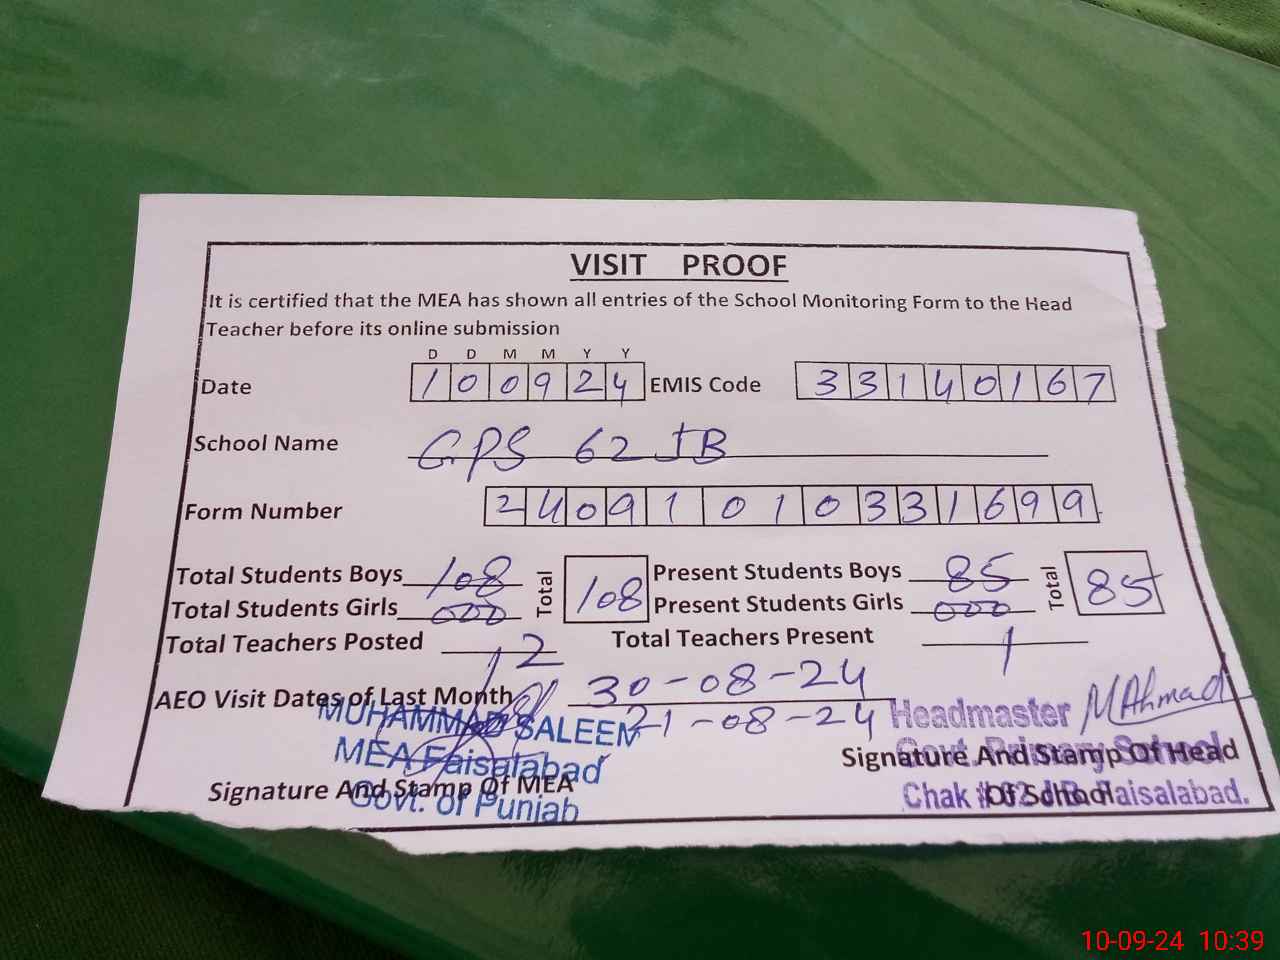 VISIT PROOF
It is certified that the MEA has shown all entries of the School Monitoring Form to the Head
Teacher before its online submission
D D M M Y Y
Date 1 0 0 9 2 4 EMIS Code 3 3 1 4 0 1 6 7
School Name GPS 62 JB
Form Number 2 4 0 9 1 0 1 0 3 3 1 6 9 9
Total Students Boys 108 Total 108 Present Students Boys 85 Total 85
Total Students Girls 000 Present Students Girls 000
Total Teachers Posted 2 Total Teachers Present 1
AEO Visit Dates of Last Month 30-08-24
21-08-24
MUHAMMAD SALEEM
MEA Faisalabad
Govt. of Punjab
Signature And Stamp Of MEA
Headmaster MAhmad
Govt. Primary School
Chak # 62 JB Faisalabad.
Signature And Stamp Of Head
Of School
10-09-24 10:39